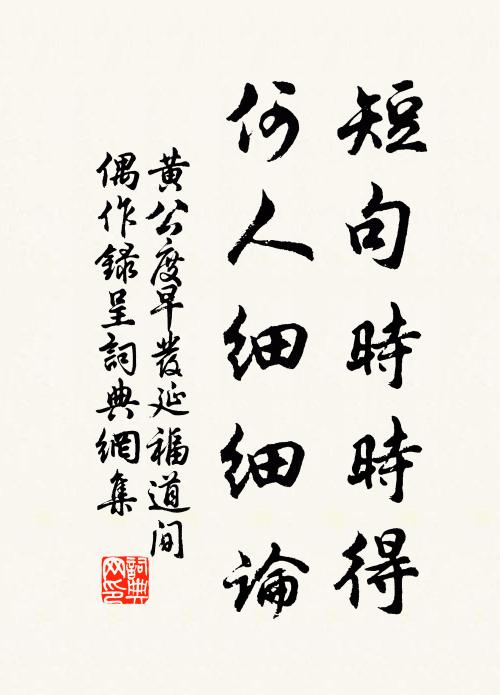 短句時時得
何人細細論
黄公度早發延福道间
偶作録呈詞典網集
詞典网印